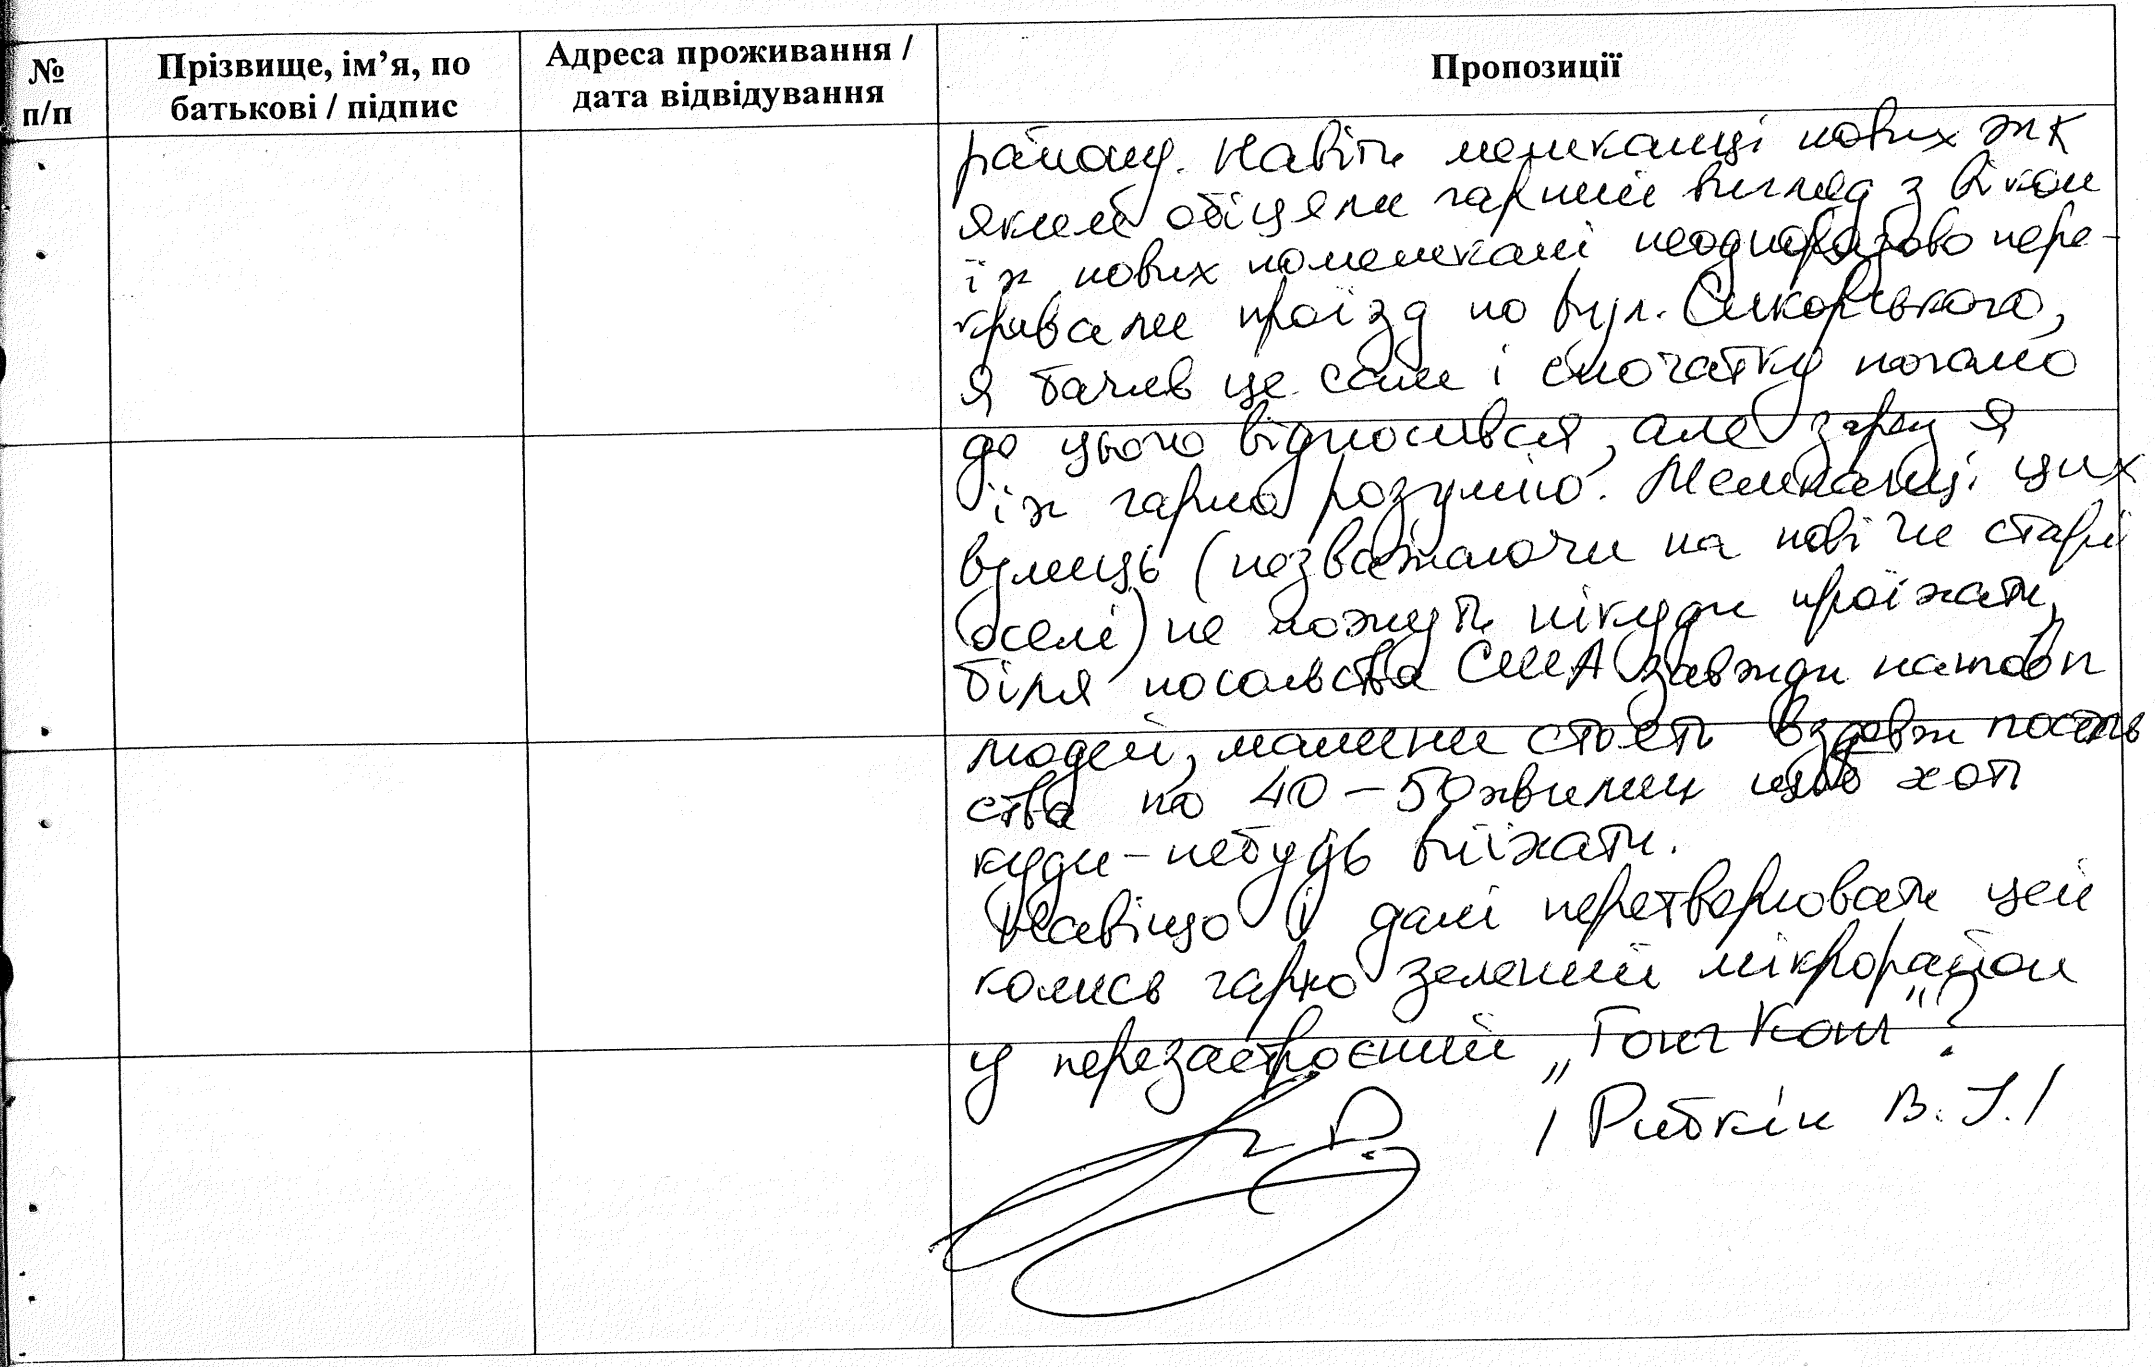 №
п/п
Прізвище, ім’я, по
батькові / підпис
Адреса проживання /
дата відвідування
Пропозиції
району. Навіть мешканці нових ЖК
яким обіцяли гарний вигляд з вікон
їх нових помешкані неодноразово пере-
кривали проїзд по вул. Сікорського,
я бачив це сам і спочатку погано
до цього відносився, але зараз я
їх гарно розумію. Мешканці цих
вулиць (незважаючи на нові чи старі
оселі) не можуть нікуди проїхати,
біля посольства США завжди натовп
людей, машини стоять вздовж посоль
ства по 40-50 хвилин щоб хоть
куди-небудь виїхати.
Навіщо і далі перетворювати цей
колись гарно зелений мікрорайон
у перезастроєний „Гонг Конг"?
/ Рибкін В. І./